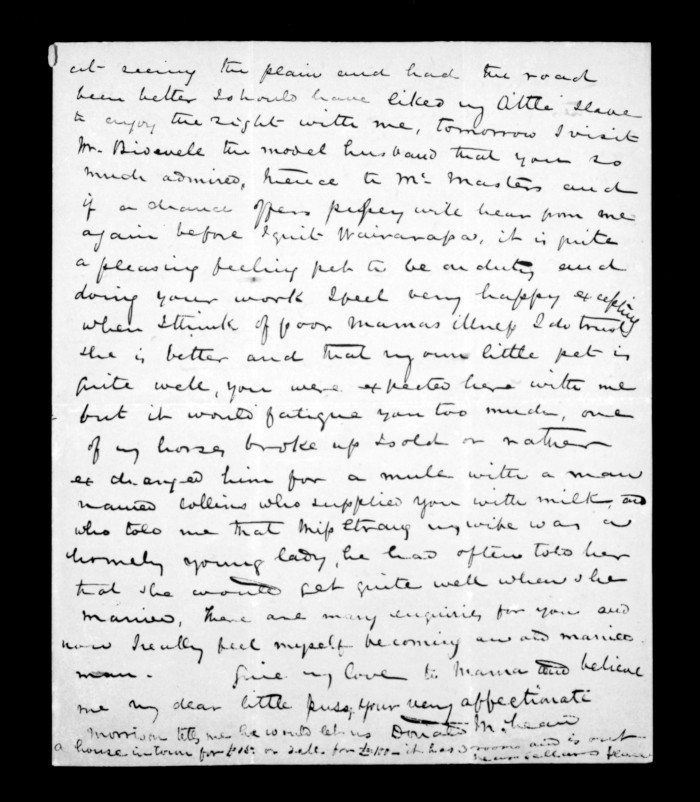 at seeing the plain and had the road
been better I should have liked my little slave
to enjoy the sight with me, tomorrow I visit
Mr. Bidwell the model husband that you so
much admired, thence to Mc Masters and
if a chance offers pussey will hear from me
again before I quit Wairarapa, it is quite
a pleasing feeling pet to be on duty and
doing your work I feel very happy excepting
when I think of poor Mamas illness I do trust
she is better and that my own little pet is
quite well, you were expected here with me
but it would fatigue you too much, one
of my horses broke up I sold or rather
exchanged him for a mule with a man
named Collins who supplied you with milk, and
who told me that Miss Strang my wife was a
homely young lady, he had often told her
that she would get quite well when she
married, There are many enquiries for you and
now I really feel myself becoming an old married
man. Give my love to Mama and believe
me my dear little pussy your very affectionate
Donald McLean
Morrison tells me he would let us
a house in town for or sale for it has rooms and is out
near